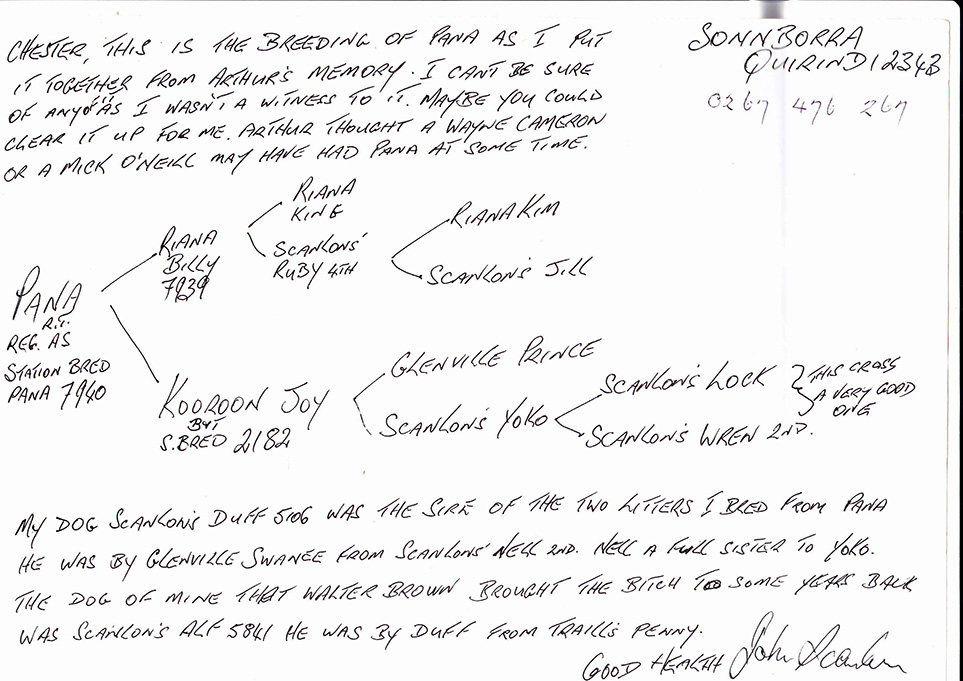 CHESTER, THIS IS THE BREEDING OF PANA AS I PUT
IT TOGETHER FROM ARTHUR'S MEMORY. I CANT BE SURE
OF ANY AS I WASN'T A WITNESS TO IT. MAYBE YOU COULD
CLEAR IT UP FOR ME. ARTHUR THOUGHT A WAYNE CAMERON
OR A MICK O'NEILL MAY HAVE HAD PANA AT SOME TIME.
SONNBORRA
QUIRINDI 2343
0267 476 267
RIANA
KING
RIANA
BILLY
7939
SCANLONS'
RUBY 4TH
RIANA KIM
SCANLON'S JILL
PANA
R.T.
REG. AS
STATION BRED
PANA 7940
KOOROON JOY
BUT
S.BRED 2182
GLENVILLE PRINCE
SCANLON'S YOKO
SCANLON'S LOCK
SCANLON'S WREN 2ND.
THIS CROSS
A VERY GOOD
ONE
MY DOG SCANLON'S DUFF 5106 WAS THE SIRE OF THE TWO LITTERS I BRED FROM PANA
HE WAS BY GLENVILLE SWANEE FROM SCANLONS' NELL 2ND. NELL A FULL SISTER TO YOKO.
THE DOG OF MINE THAT WALTER BROWN BROUGHT THE BITCH TO SOME YEARS BACK
WAS SCANLON'S ALF 5841 HE WAS BY DUFF FROM TRAILL'S PENNY.
GOOD HEALTH John Scanlon